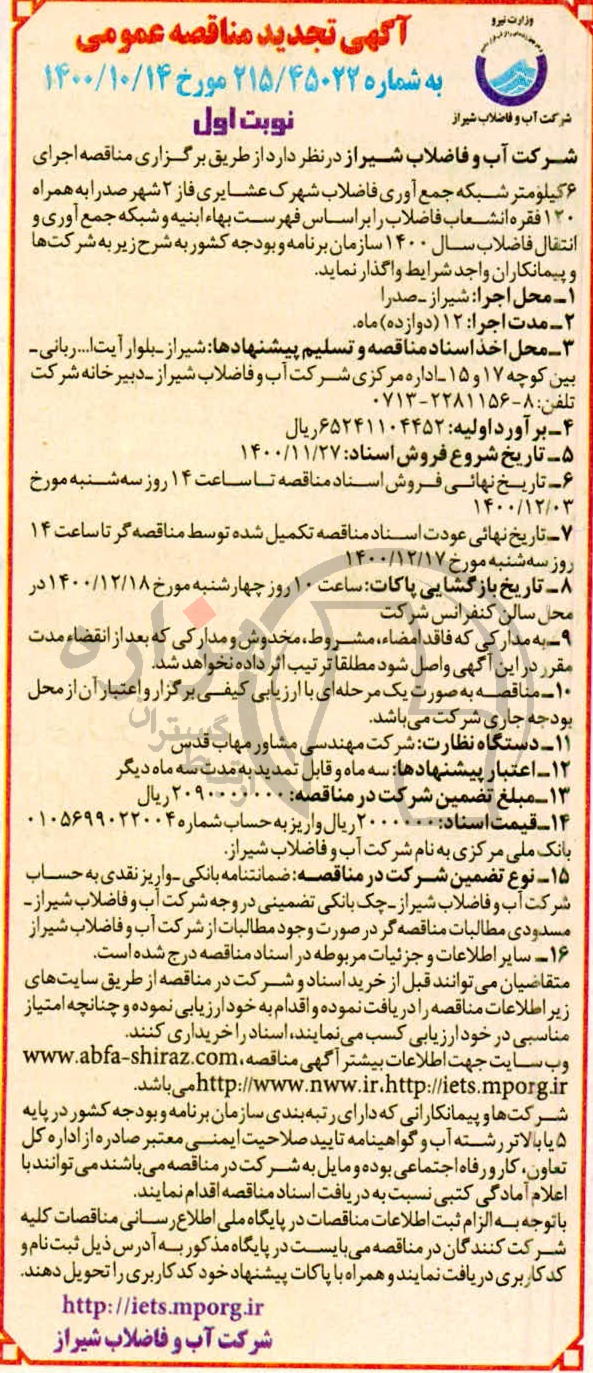 وزارت نیرو
شرکت آب و فاضلاب شیراز
آگهی تجدید مناقصه عمومی
به شماره ۲۱۵/۴۵۰۲۲ مورخ ۱۴۰۰/۱۰/۱۴
نوبت اول
شرکت آب و فاضلاب شیراز در نظر دارد از طریق برگزاری مناقصه اجرای
۶ کیلومتر شبکه جمع آوری فاضلاب شهرک عشایری فاز ۲ شهر صدرا به همراه
۱۲۰ فقره انشعاب فاضلاب را بر اساس فهرست بهاء ابنیه و شبکه جمع آوری و
انتقال فاضلاب سال ۱۴۰۰ سازمان برنامه و بودجه کشور به شرح زیر به شرکت‌ها
و پیمانکاران واجد شرایط واگذار نماید.
۱ـ محل اجرا: شیراز ـ صدرا
۲ـ مدت اجرا: ۱۲ (دوازده) ماه.
۳ـ محل اخذ اسناد مناقصه و تسلیم پیشنهادها: شیراز ـ بلوار آیت‌ا... ربانی ـ
بین کوچه ۱۷ و ۱۵ ـ اداره مرکزی شرکت آب و فاضلاب شیراز ـ دبیرخانه شرکت
تلفن: ۸ - ۲۲۸۱۱۵۶ - ۰۷۱۳
۴ـ برآورد اولیه: ۶۵۲۴۱۱۰۴۴۵۲ ریال
۵ـ تاریخ شروع فروش اسناد: ۱۴۰۰/۱۱/۲۷
۶ـ تاریخ نهائی فروش اسناد مناقصه تا ساعت ۱۴ روز سه‌شنبه مورخ
۱۴۰۰/۱۲/۰۳
۷ـ تاریخ نهائی عودت اسناد مناقصه تکمیل شده توسط مناقصه‌گر تا ساعت ۱۴
روز سه‌شنبه مورخ ۱۴۰۰/۱۲/۱۷
۸ـ تاریخ بازگشایی پاکات: ساعت ۱۰ روز چهارشنبه مورخ ۱۴۰۰/۱۲/۱۸ در
محل سالن کنفرانس شرکت
۹ـ به مدارکی که فاقد امضاء، مشروط، مخدوش و مدارکی که بعد از انقضاء مدت
مقرر در این آگهی واصل شود مطلقاً ترتیب اثر داده نخواهد شد.
۱۰ـ مناقصه به صورت یک مرحله‌ای با ارزیابی کیفی برگزار و اعتبار آن از محل
بودجه جاری شرکت می‌باشد.
۱۱ـ دستگاه نظارت: شرکت مهندسی مشاور مهاب قدس
۱۲ـ اعتبار پیشنهادها: سه ماه و قابل تمدید به مدت سه ماه دیگر
۱۳ـ مبلغ تضمین شرکت در مناقصه: ۲۰۹۰۰۰۱۰۰۰ ریال
۱۴ـ قیمت اسناد: ۲۰۰۰۰۰۰ ریال واریز به حساب شماره ۰۱۰۵۶۹۹۰۲۲۰۰۴
بانک ملی مرکزی به نام شرکت آب و فاضلاب شیراز.
۱۵ـ نوع تضمین شرکت در مناقصه: ضمانتنامه بانکی ـ واریز نقدی به حساب
شرکت آب و فاضلاب شیراز ـ چک بانکی تضمینی در وجه شرکت آب و فاضلاب شیراز ـ
مسدودی مطالبات مناقصه‌گر در صورت وجود مطالبات از شرکت آب و فاضلاب شیراز
۱۶ـ سایر اطلاعات و جزئیات مربوطه در اسناد مناقصه درج شده است.
متقاضیان می‌توانند قبل از خرید اسناد و شرکت در مناقصه از طریق سایت‌های
زیر اطلاعات مناقصه را دریافت نموده و اقدام به خود ارزیابی نموده و چنانچه امتیاز
مناسبی در خود ارزیابی کسب می‌نمایند، اسناد را خریداری کنند.
وب سایت جهت اطلاعات بیشتر آگهی مناقصه، www.abfa-shiraz.com
http://www.nww.ir،http://iets.mporg.ir می‌باشد.
شرکت‌ها و پیمانکارانی که دارای رتبه‌بندی سازمان برنامه و بودجه کشور در پایه
۵ یا بالاتر رشته آب و گواهینامه تایید صلاحیت ایمنی معتبر صادره از اداره کل
تعاون، کار و رفاه اجتماعی بوده و مایل به شرکت در مناقصه می‌باشند می‌توانند با
اعلام آمادگی کتبی نسبت به دریافت اسناد مناقصه اقدام نمایند.
با توجه به الزام ثبت اطلاعات مناقصات در پایگاه ملی اطلاع رسانی مناقصات کلیه
شرکت کنندگان در مناقصه می‌بایست در پایگاه مذکور به آدرس ذیل ثبت نام و
کد کاربری دریافت نمایند و همراه با پاکات پیشنهاد خود کد کاربری را تحویل دهند.
http://iets.mporg.ir
شرکت آب و فاضلاب شیراز